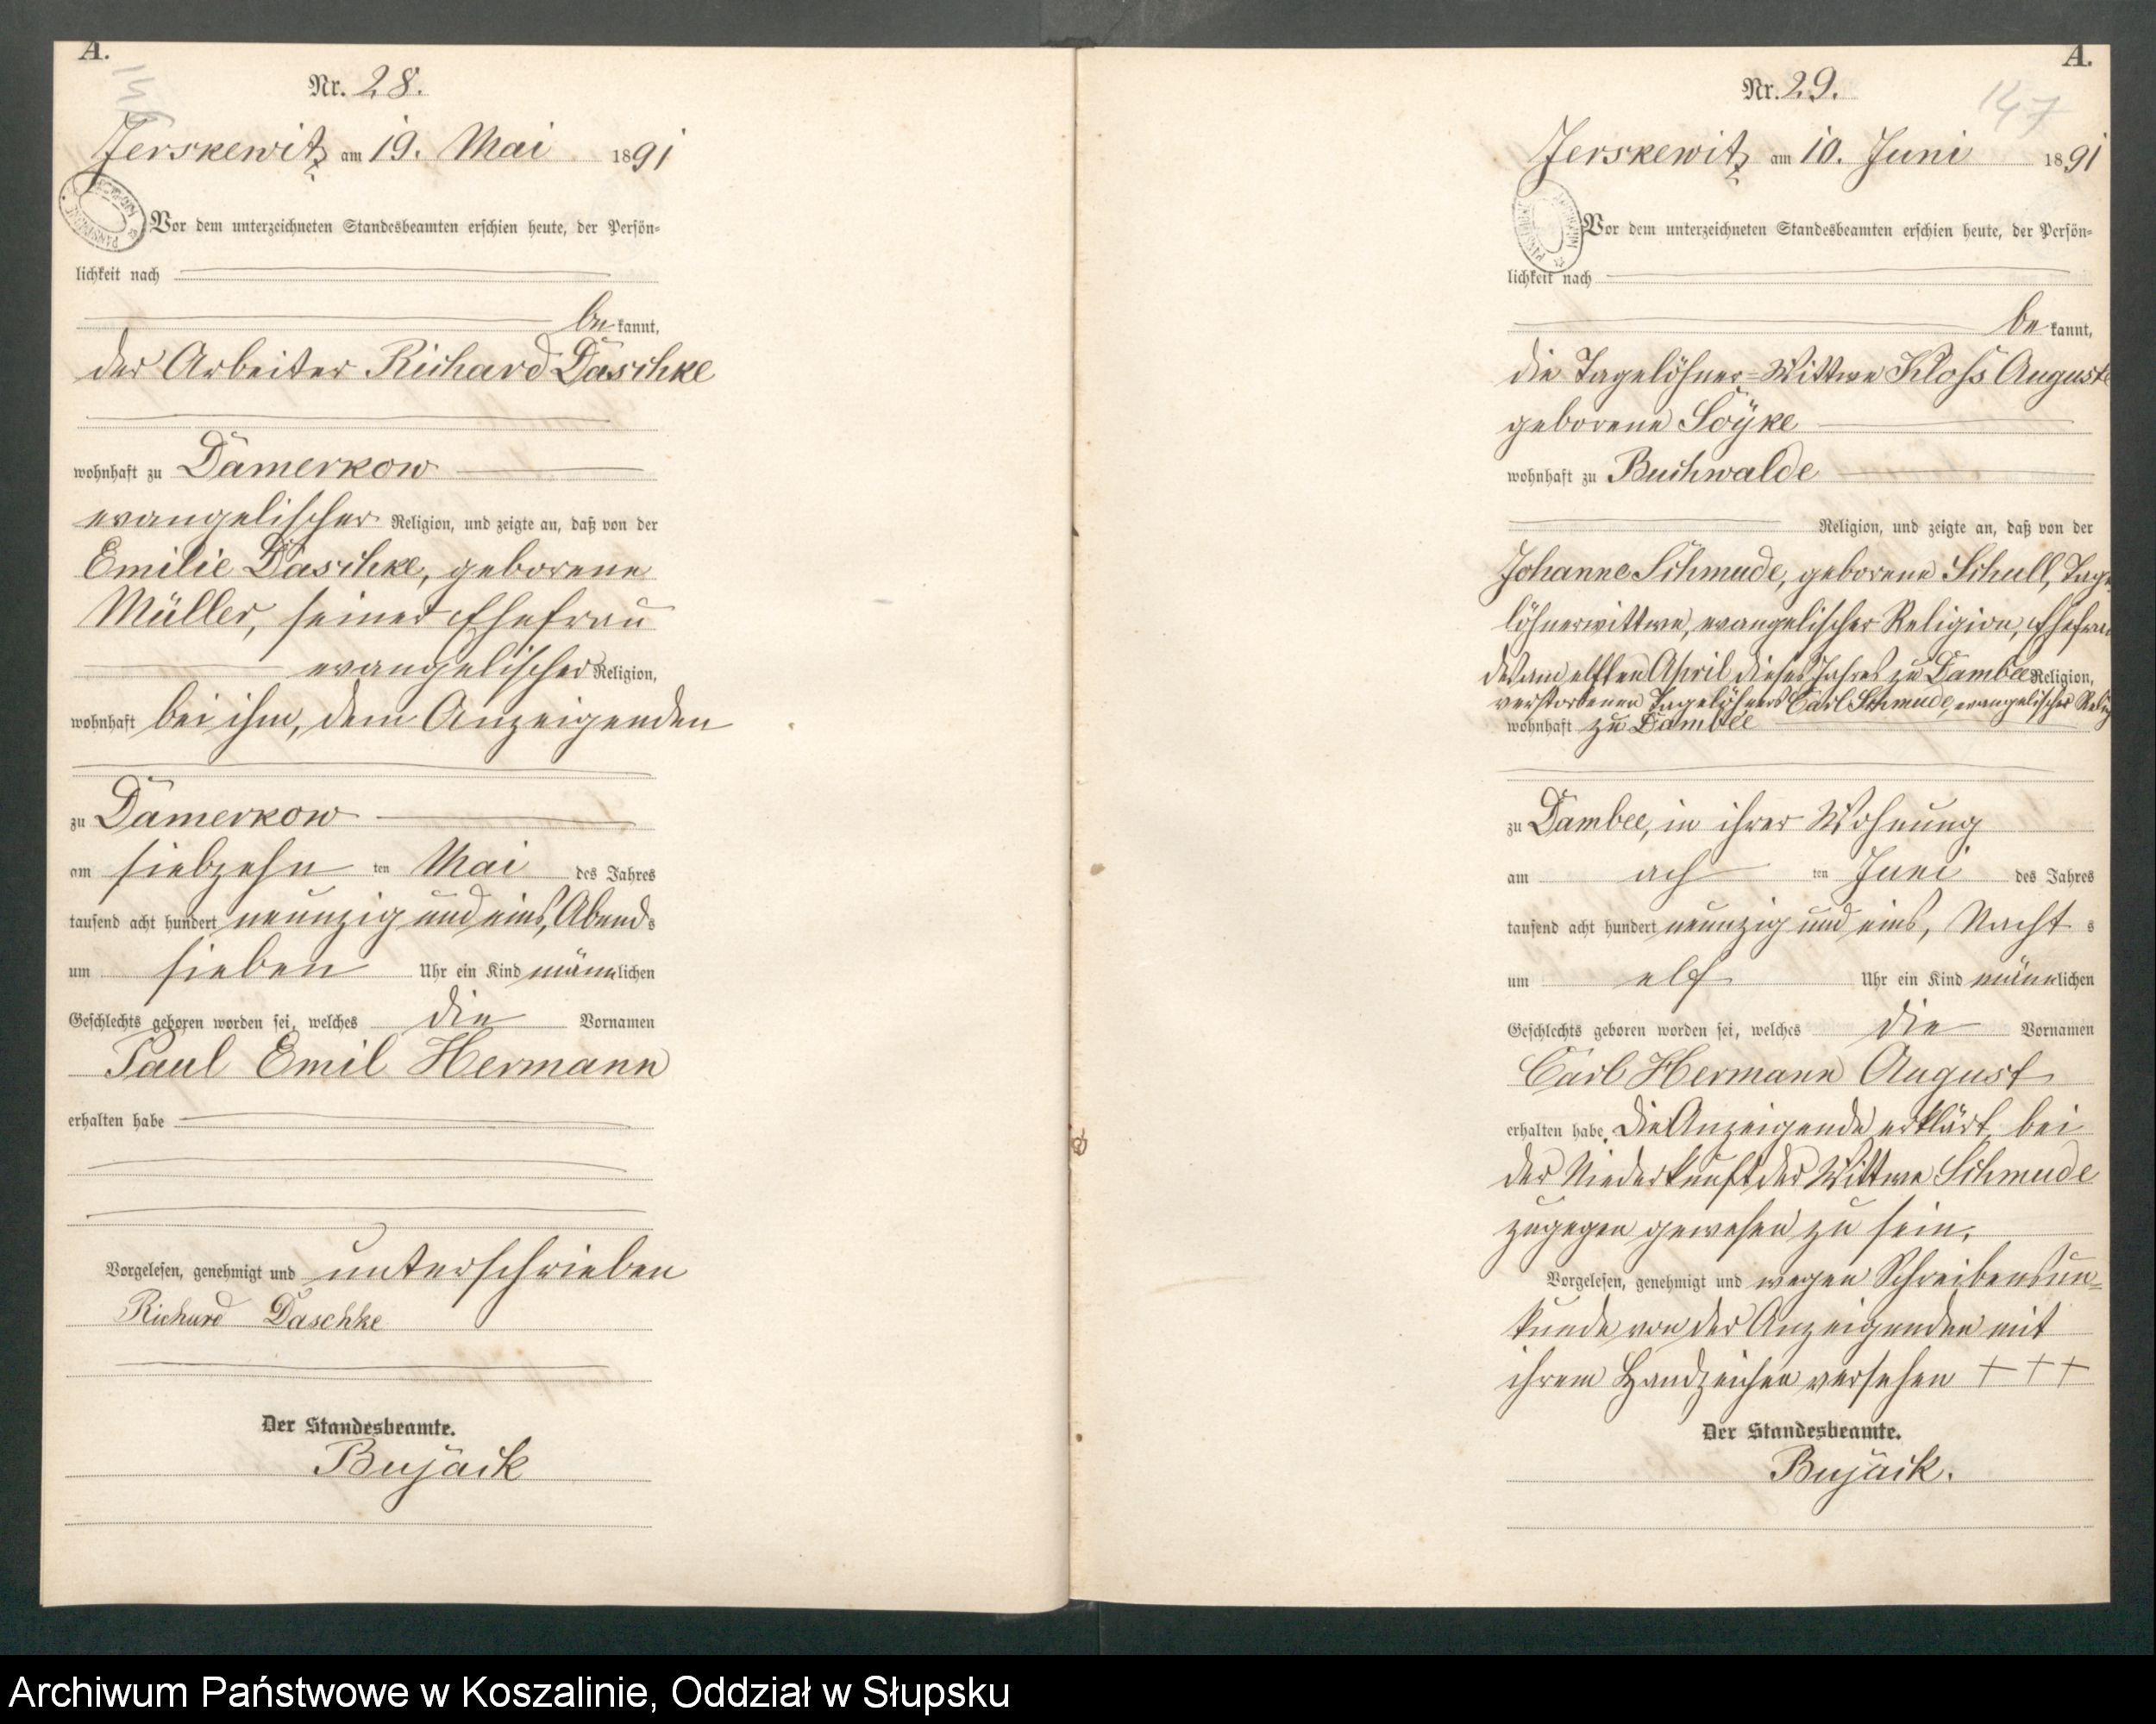 A.
Nr. 28.
Jerskewitz am 19. Mai 1891
Vor dem unterzeichneten Standesbeamten erschien heute, der Persön-
lichkeit nach
be kannt,
der Arbeiter Richard Daschke
wohnhaft zu Damerkow
evangelischer Religion, und zeigte an, daß von der
Emilie Daschke, geborene
Müller, seiner Ehefrau
evangelischer Religion,
wohnhaft bei ihm, dem Anzeigenden
zu Damerkow
am siebzehn ten Mai des Jahres
tausend acht hundert neunzig und eins, Abends
um sieben Uhr ein Kind männlichen
Geschlechts geboren worden sei, welches die Vornamen
Paul Emil Hermann
erhalten habe
Vorgelesen, genehmigt und unterschrieben
Richard Daschke
Der Standesbeamte.
Bujack
A.
Nr. 29.
147
Jerskewitz am 10. Juni 1891
Vor dem unterzeichneten Standesbeamten erschien heute, der Persön-
lichkeit nach
be kannt,
die Tagelöhner-Wittwe Kloss Auguste
geborene Soyke
wohnhaft zu Buchwalde
Religion, und zeigte an, daß von der
Johanne Schmude, geborene Schull, Tage
löhnerwittwe, evangelischer Religion, Ehefrau
des am elften April dieses Jahres zu Dambee Religion,
verstorbenen Tagelöhners Carl Schmude, evangelischer Relig
wohnhaft zu Dambee
zu Dambee, in ihrer Wohnung
am ach ten Juni des Jahres
tausend acht hundert neunzig und eins, Nacht s
um elf Uhr ein Kind männlichen
Geschlechts geboren worden sei, welches die Vornamen
Carl Hermann August
erhalten habe. Die Anzeigende erklärt, bei
der Niederkunft der Wittwe Schmude
zugegen gewesen zu sein.
Vorgelesen, genehmigt und wegen Schreibensun-
kunde von der Anzeigenden mit
ihrem Handzeichen versehen + + +
Der Standesbeamte.
Bujack.
Archiwum Państwowe w Koszalinie, Oddział w Słupsku